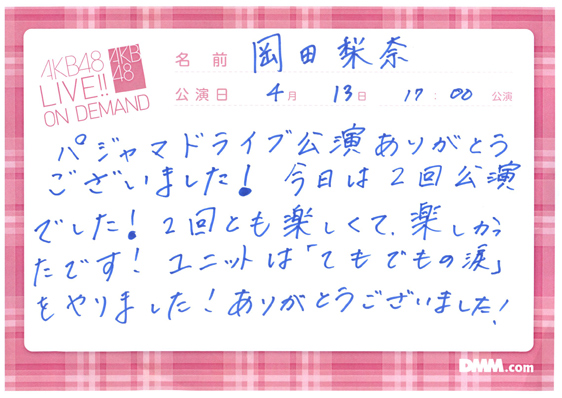 AKB48
LIVE!!
ON DEMAND
AKB
48
名前 岡田梨奈
公演日 4月 13日 17:00 公演
パジャマドライブ公演ありがとう
ございました! 今日は2回公演
でした! 2回とも楽しくて、楽しかっ
たです! ユニットは「てもでもの涙」
をやりました! ありがとうございました!
DMM.com